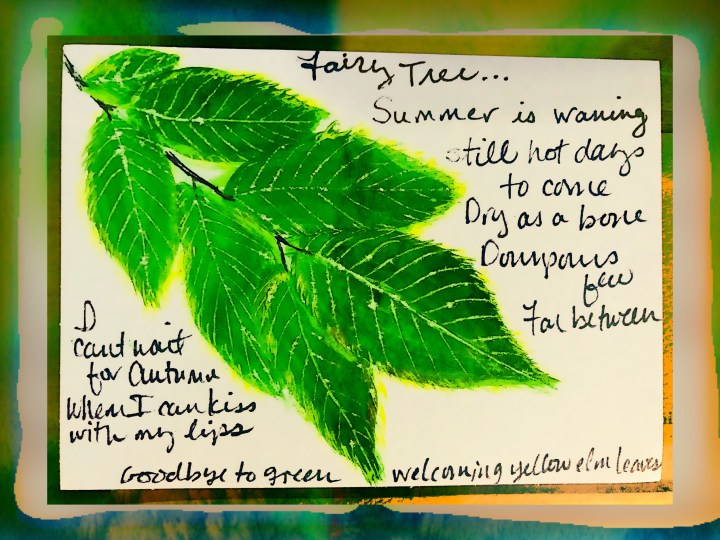 Fairy Tree...
Summer is waning
still hot days
to come
Dry as a bone
Downpours
few
Far between
I
can't wait
for Autumn
When I can kiss
with my lips
Goodbye to green
welcoming yellow elm leaves